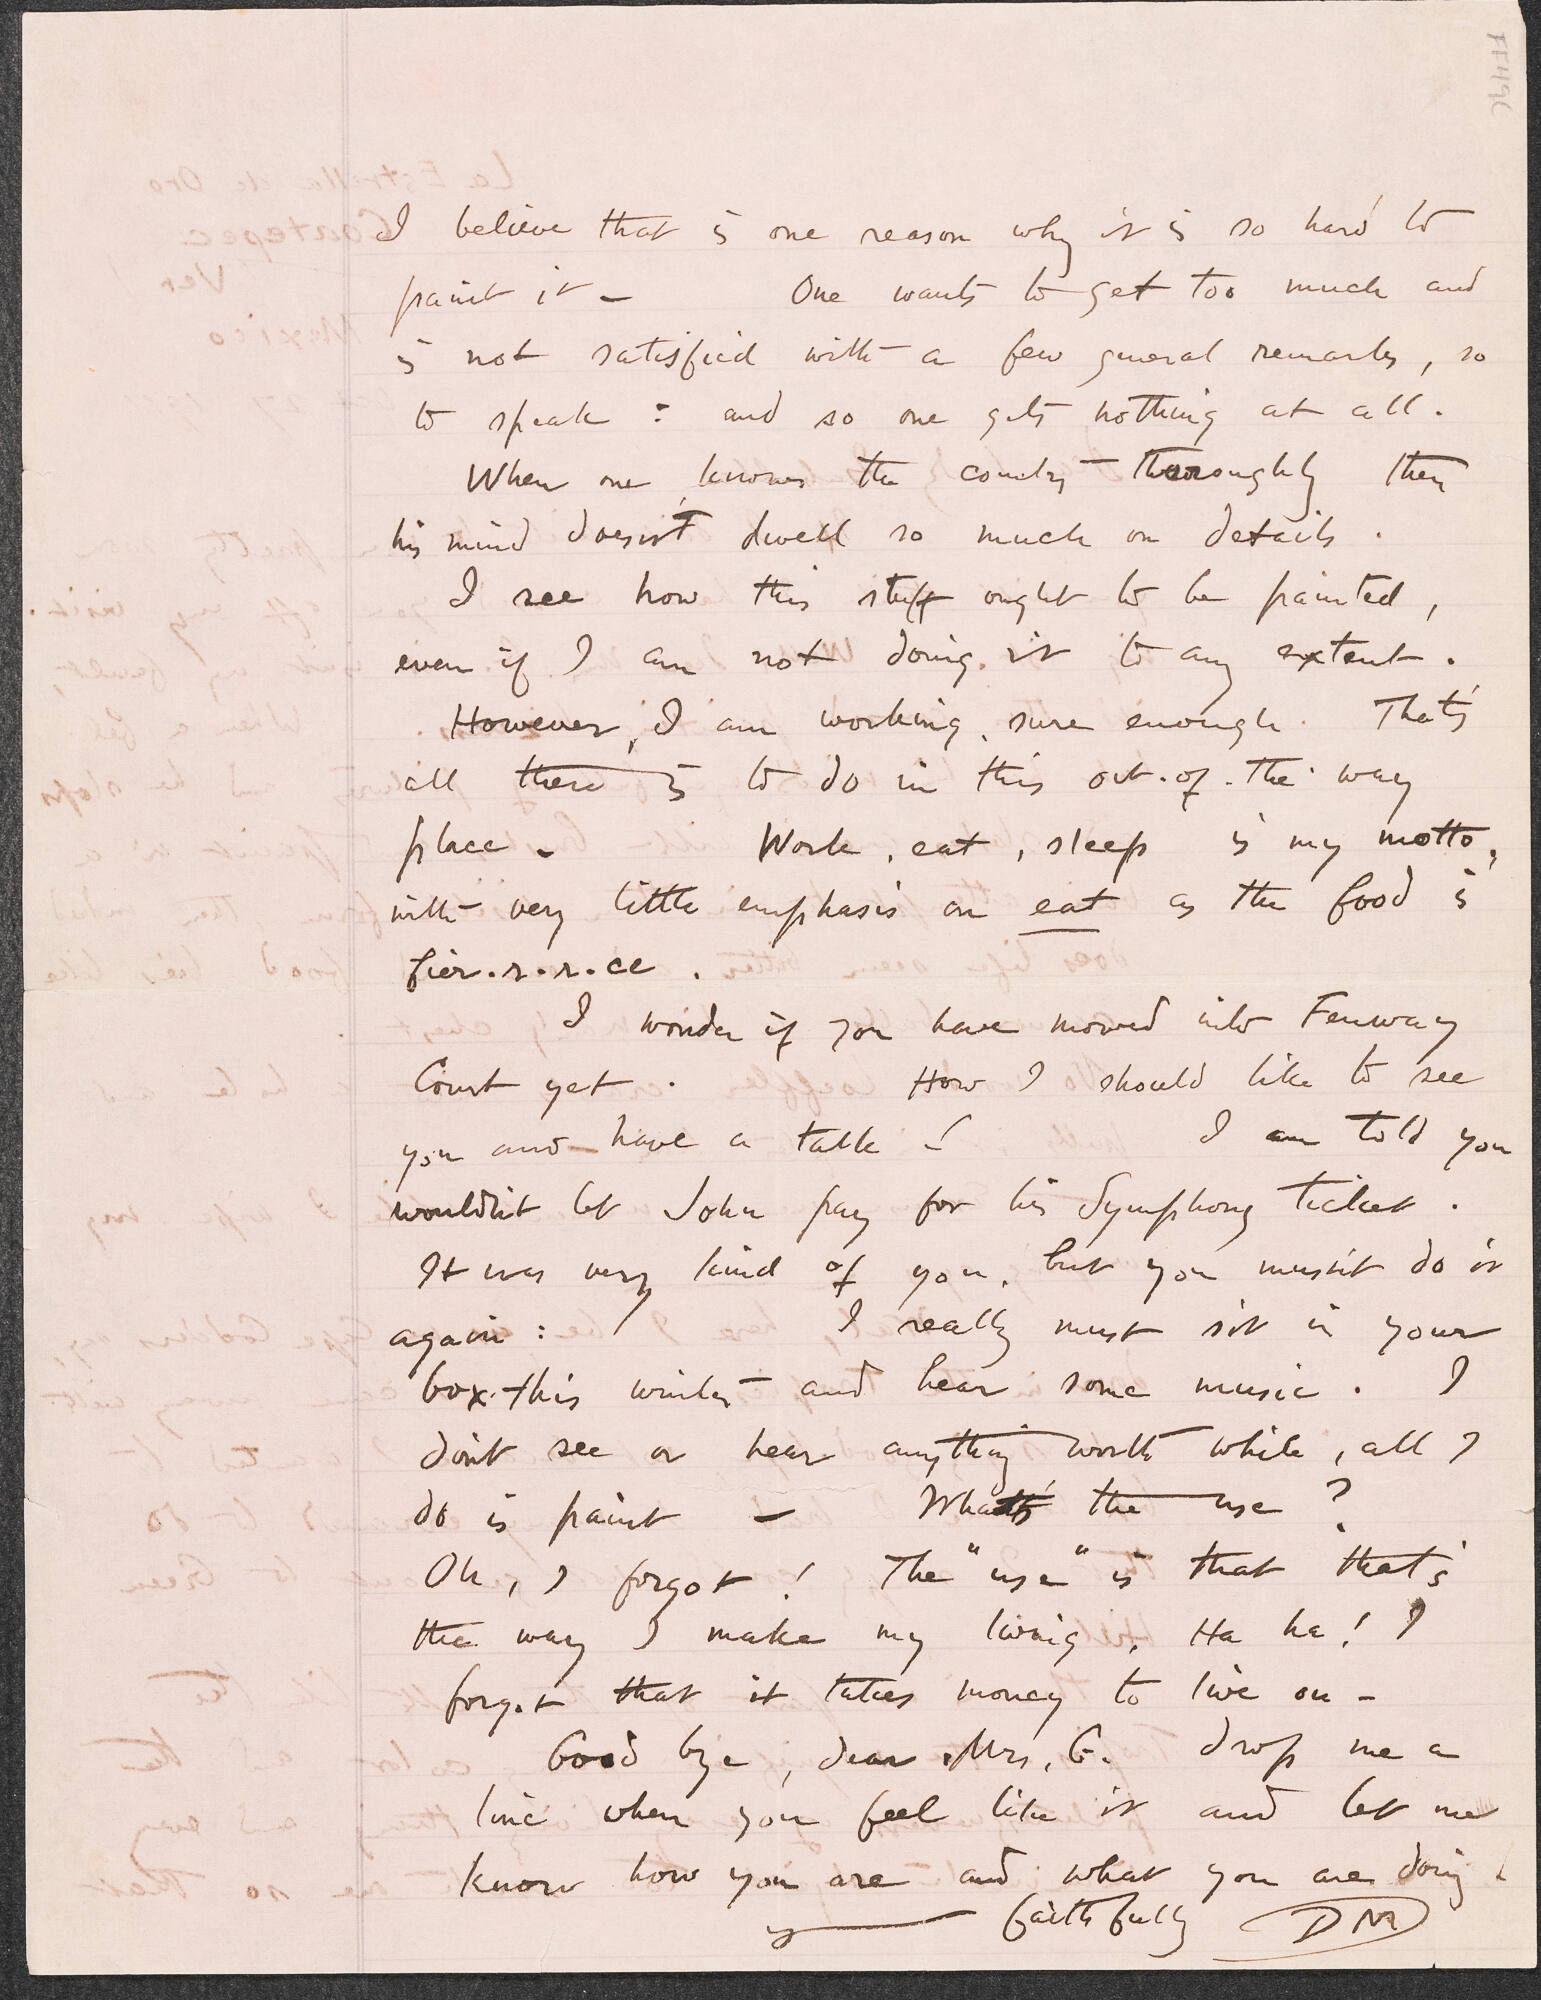 I believe that is one reason why it is so hard to
paint it — One wants to get too much and
is not satisfied with a few general remarks, so
to speak : and so one gets nothing at all.
When one knows the country thoroughly then
his mind doesn't dwell so much on details.
I see how this stuff ought to be painted,
even if I am not doing it to any extent.
However, I am working, sure enough. That's
all there is to do in this out-of-the-way
place — Work, eat, sleep is my motto,
with very little emphasis on eat as the food is
fier.r.r.r.ce.
I wonder if you have moved into Fenway
Court yet. How I should like to see
you and have a talk! I am told you
wouldn't let John pay for his Symphony ticket.
It was very kind of you, but you musn't do it
again: I really must sit in your
box this winter and hear some music. I
don't see or hear anything worth while, all I
do is paint — What's the use?
Oh, I forgot! The "use" is that that's
the way I make my living, Ha ha! I
forgot that it takes money to live on —
Good bye, dear Mrs. G. drop me a
line when you feel like it and let me
know how you are and what you are doing!
y—— faithfully DM
FF49C